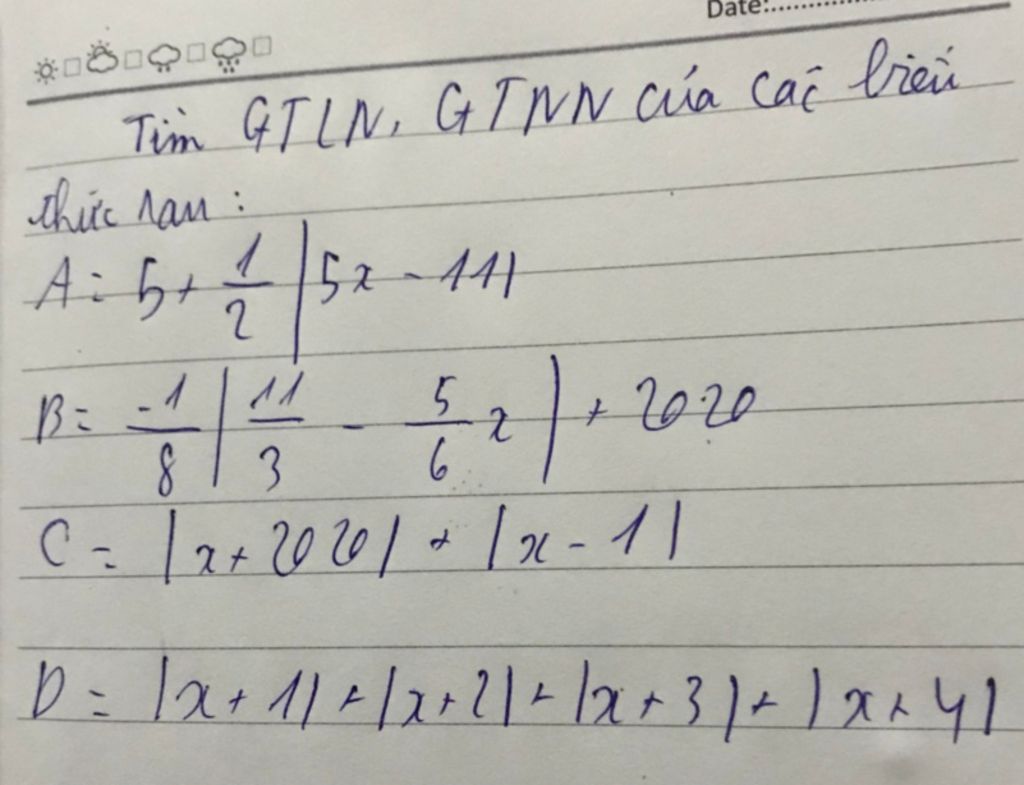 Date:................
Tìm GTLN, GTNN của các biểu
thức sau:
A = 5 + \frac{1}{2} |5x - 11|
B = \frac{-1}{8} | \frac{11}{3} - \frac{5}{6} x | + 2020
C = |x + 2020| + |x - 1|
D = |x + 1| + |x + 2| + |x + 3| + |x + 4|